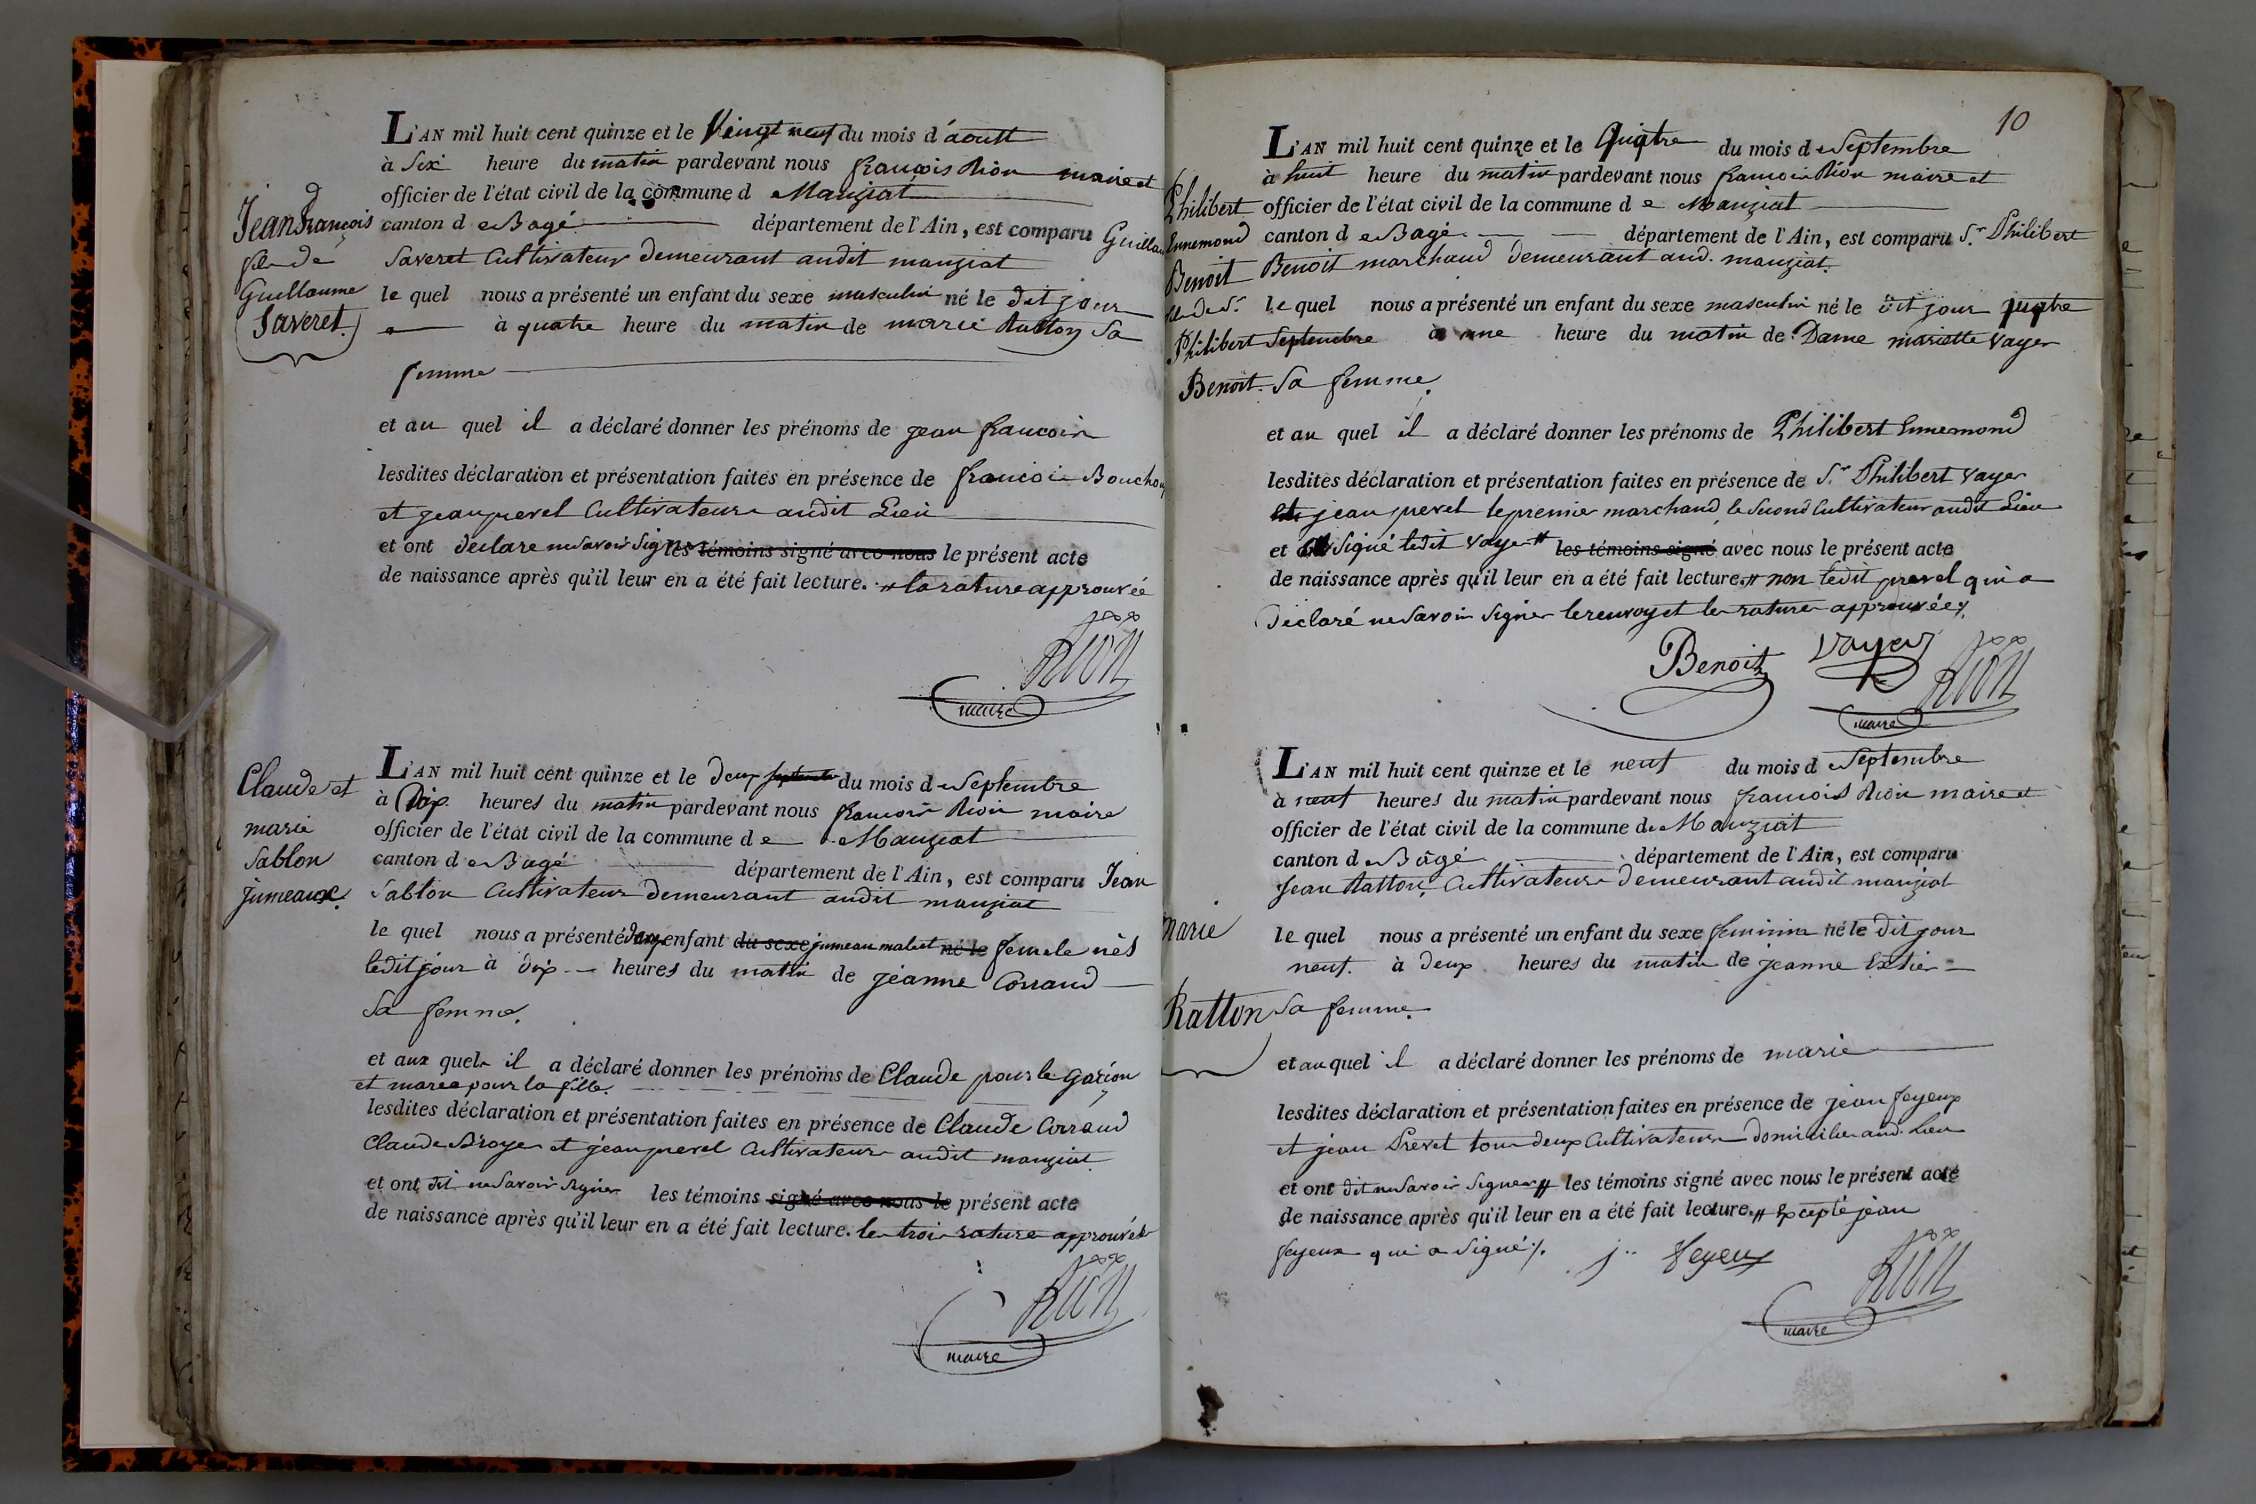 Jean François
fils de
Guillaume
Saveret.
L'AN mil huit cent quinze et le Vingt neuf du mois d'aoust
à Six heure du matin pardevant nous françois Rion maire et
officier de l'état civil de la commune d Manziat
canton d e Bagé département de l'Ain, est comparu Guillau
Saveret Cultivateur demeurant audit manziat
le quel nous a présenté un enfant du sexe masculin né le dit jour
à quatre heure du matin de marie Ratton Sa
femme
et au quel il a déclaré donner les prénoms de jean francois
lesdites déclaration et présentation faites en présence de francois Bouchoux
et jean prevel Cultivateurs audit Lieu
et ont declare ne Savoir Sig les témoins signé avec nous le présent acte
de naissance après qu'il leur en a été fait lecture. // la rature approuvée
Rion
maire
Claude et
marie
Sablon
jumeaux.
L'AN mil huit cent quinze et le deux septembre du mois d e Septembre
à Dix heures du matin pardevant nous francois Rion maire
officier de l'état civil de la commune d e Manziat
canton d e Bagé département de l'Ain, est comparu Jean
Sablon Cultivateur demeurant audit manziat
le quel nous a présenté deux enfant du sexe jumeau male et né le femele nés
ledit jour à dix heures du matin de jeanne Corrand
Sa femme.
et aux quels il a déclaré donner les prénoms de Claude pour le garçon
et marie pour la fille.
lesdites déclaration et présentation faites en présence de Claude Corrand
Claude Broyer et jean prevel Cultivateurs audit manziat
et ont dit ne Savoir Signer les témoins signé avec nous le présent acte
de naissance après qu'il leur en a été fait lecture. les trois rature approuvées
Rion
maire
10
Philibert
Ennemond
Benoit
fils de Sr
Philibert
Benoit.
L'AN mil huit cent quinze et le Quatre du mois d e Septembre
à huit heure du matin pardevant nous francois Rion maire et
officier de l'état civil de la commune d e Manziat
canton d e Bagé département de l'Ain, est comparu Sr Philibert
Benoit marchand demeurant aud. manziat.
le quel nous a présenté un enfant du sexe masculin né le dit jour quatre
Septembre à une heure du matin de Dame mariette Vayer
Sa femme.
et au quel il a déclaré donner les prénoms de Philibert Ennemond
lesdites déclaration et présentation faites en présence de Sr Philibert Vayer
jean prevel le premier marchand, le Second Cultivateur audit Lieu
et Signé ledit Vayer // les témoins signé avec nous le présent acte
de naissance après qu'il leur en a été fait lecture. // non ledit prevel qui a
Déclaré ne Savoir Signer le renvoy et les ratures approuvées.
Benoit Vayer Rion
maire
marie
Ratton
L'AN mil huit cent quinze et le neuf du mois d e Septembre
à neuf heures du matin pardevant nous francois Rion maire et
officier de l'état civil de la commune de Manziat
canton d e Bâgé département de l'Ain, est comparu
Jean Ratton, Cultivateur demeurant audit manziat
le quel nous a présenté un enfant du sexe feminin né le dit jour
neuf. à deux heures du matin de jeanne Extier
Sa femme.
et au quel il a déclaré donner les prénoms de marie
lesdites déclaration et présentation faites en présence de jean feyeux
et jean Prevel tous deux Cultivateurs domicilies aud. Lieu
et ont dit ne Savoir Signer // les témoins signé avec nous le présent acte
de naissance après qu'il leur en a été fait lecture. // Excepté jean
feyeux qui a signé ./.
j.. feyeux
Rion
maire